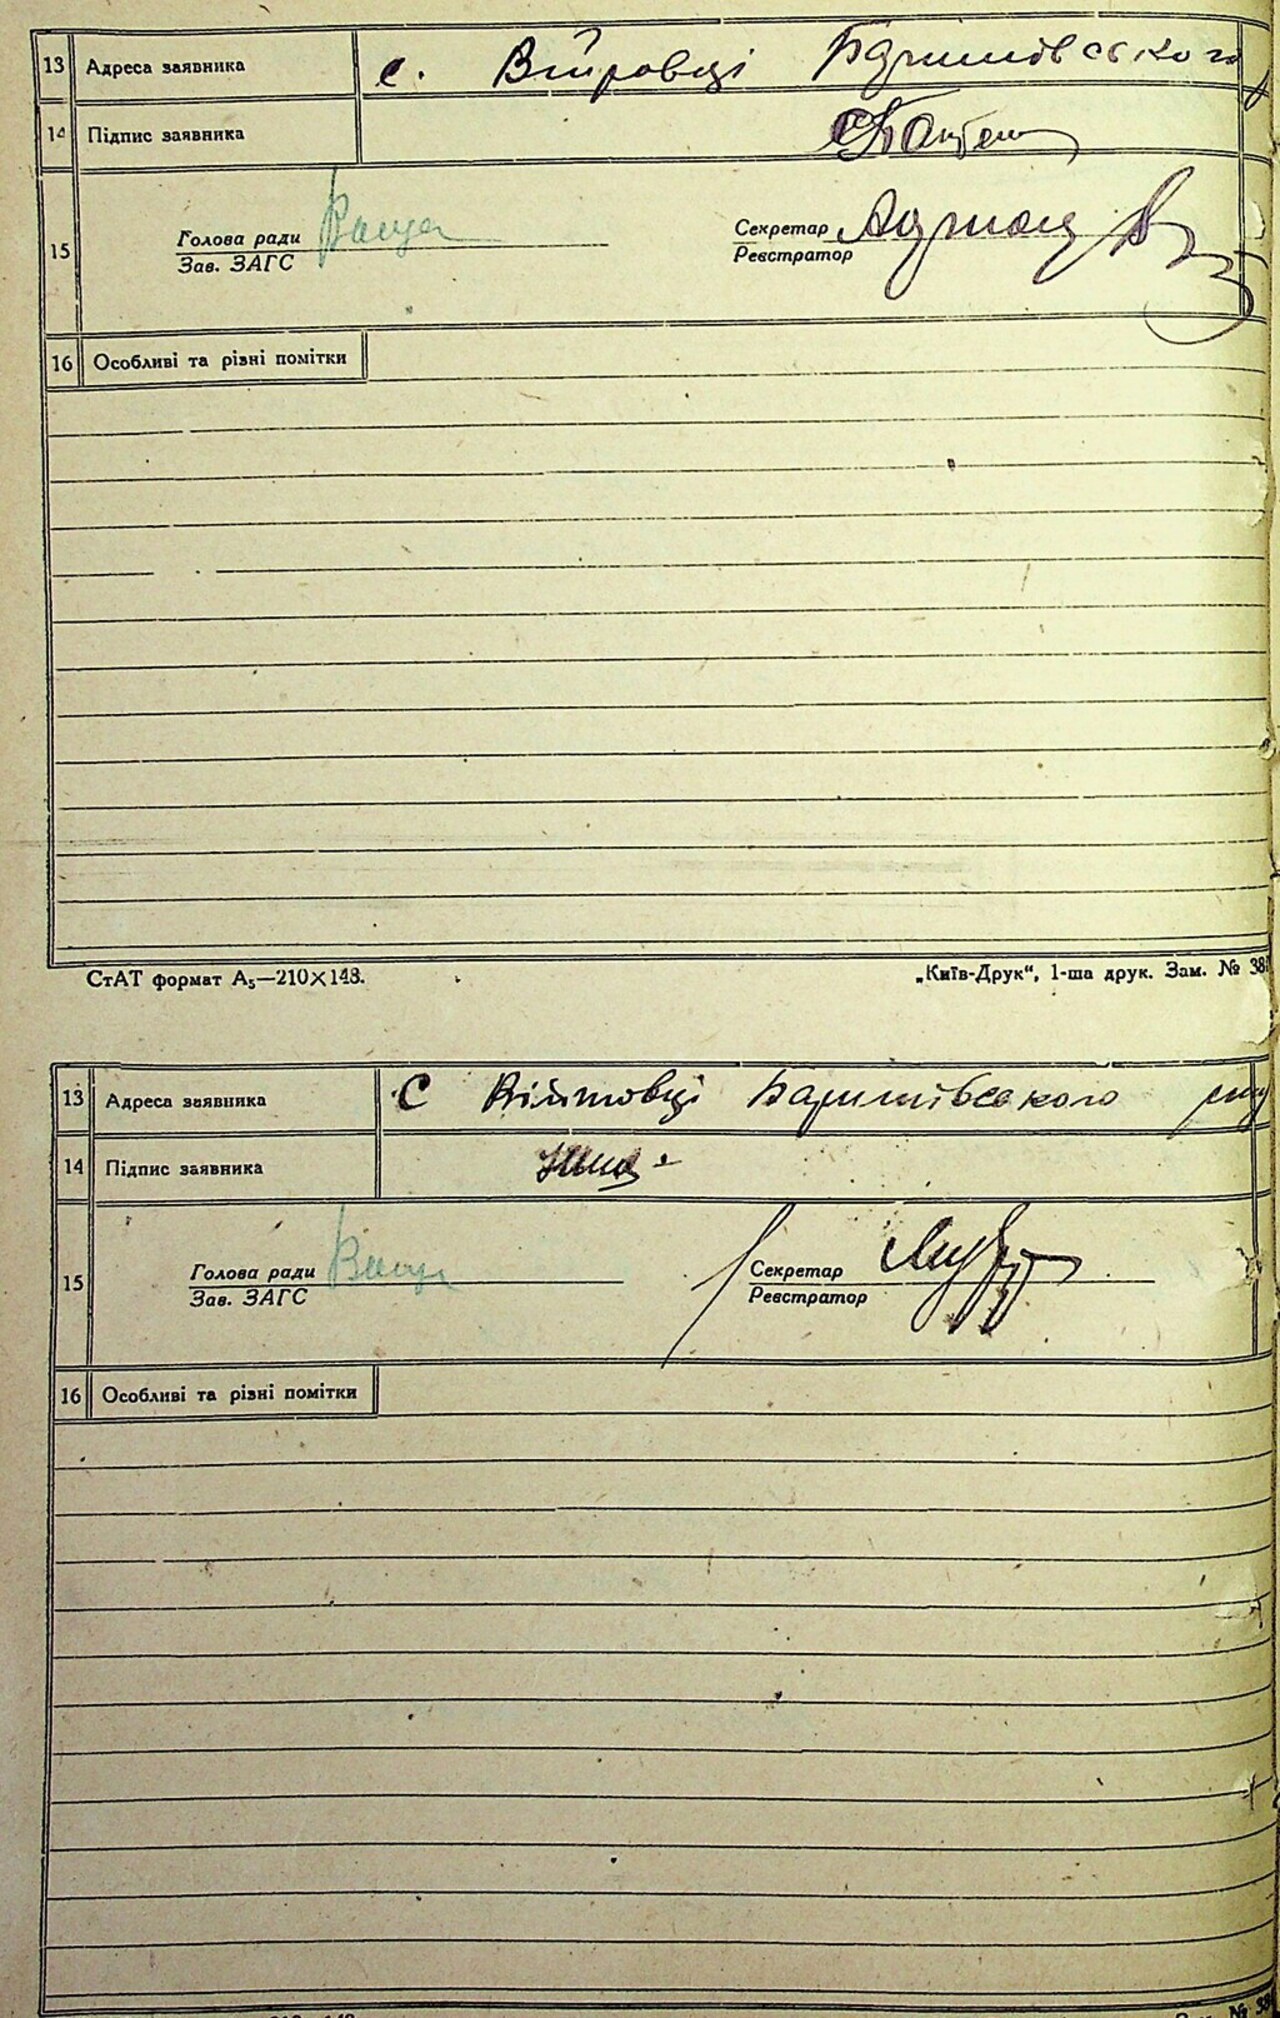 13 Адреса заявника с. Війтовці Баришівського
14 Підпис заявника
15 Голова ради Секретар
Зав. ЗАГС Реєстратор
16 Особливі та різні помітки
СтАТ формат А5—210×148. „Київ-Друк“, 1-ша друк. Зам. № 38
13 Адреса заявника С Війтовці Баришівського р-ну
14 Підпис заявника
15 Голова ради Секретар
Зав. ЗАГС Реєстратор
16 Особливі та різні помітки
№ 38